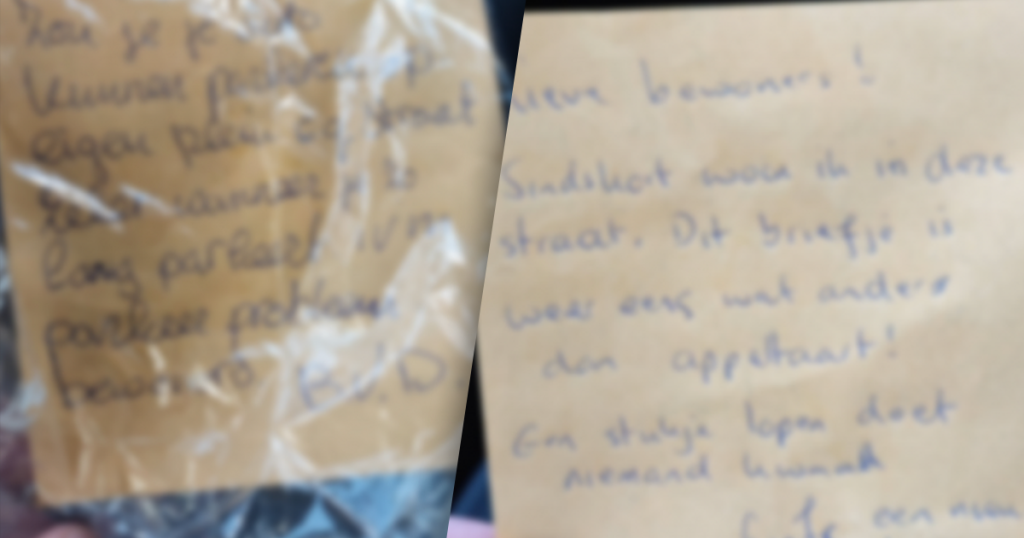 zou je je
kunnen parkeren op
eigen plein of straat
wanneer je zo
lang parkeert i.v.m.
parkeer problemen
bewoners B.V.D.
Lieve bewoners!
Sindskort woon ik in deze
straat. Dit briefje is
weer eens wat anders
dan appeltaart!
Een stukje lopen doet
niemand kwaad
een nieuw